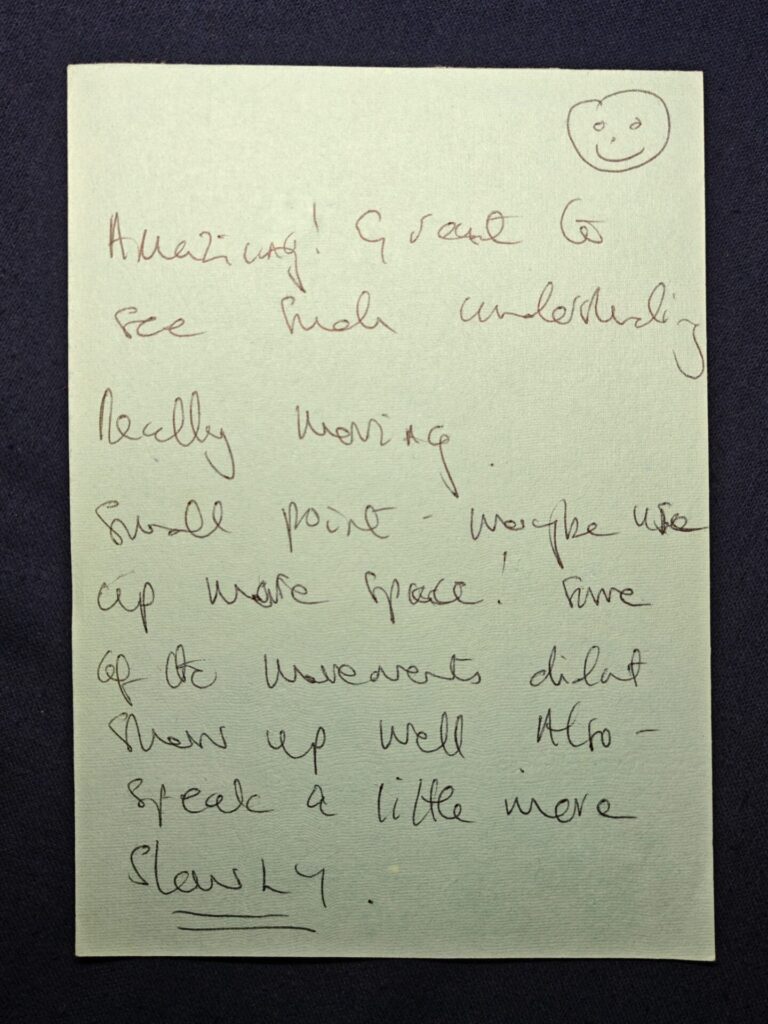 Amazing! Great to
see such understanding
Really moving.
Small point - maybe use
up more space! Some
of the movements didn't
show up well Also -
speak a little more
slowLY.